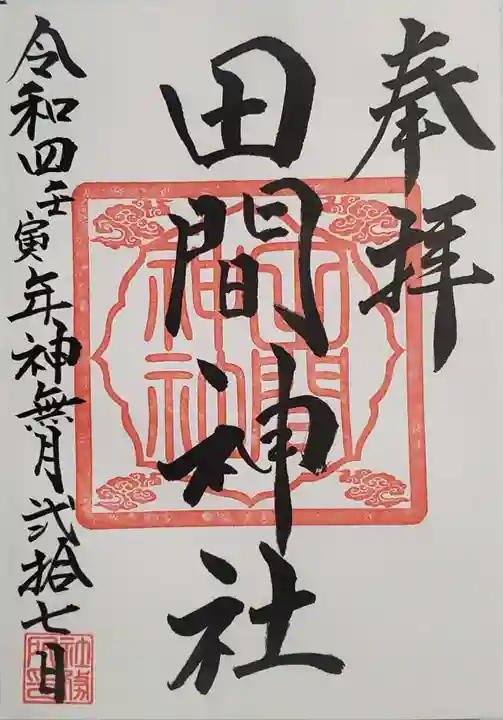 奉拝
田間神社
令和四壬寅年神無月弐拾七日
田間神社